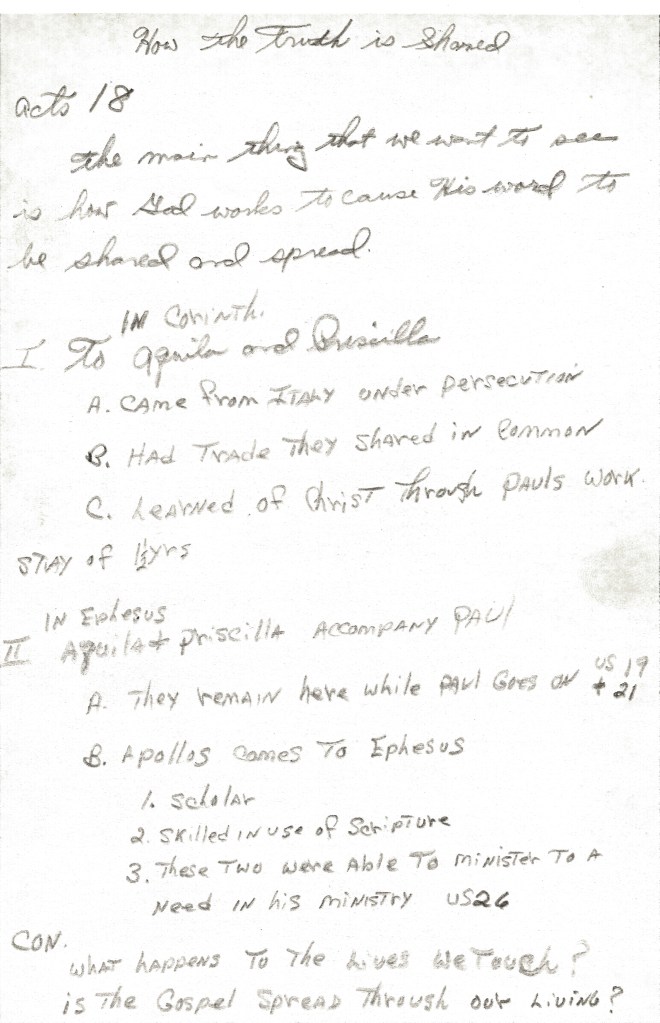 How the Truth is Shared
Acts 18
the main thing that we want to see
is how God works to cause His word to
be shared and spread.
IN Corinth.
I. To Aquila and Priscilla
A. CAme From ITALY under persecuTion
B. HAd TrAde They shared in Common
C. LeArned of ChrisT Through PAuls work.
STAY of 1½ yrs
IN Ephesus
II Aquila + Priscilla Accompany PAul
A. They remAin here while PAul Goes on vs 19
+ 21
B. Apollos Comes To Ephesus
1. Scholar
2. Skilled in use of Scripture
3. These Two were Able To minister To A
Need IN his ministry vs26
CON.
What happens To The Lives We Touch?
is The Gospel Spread Through our Living?